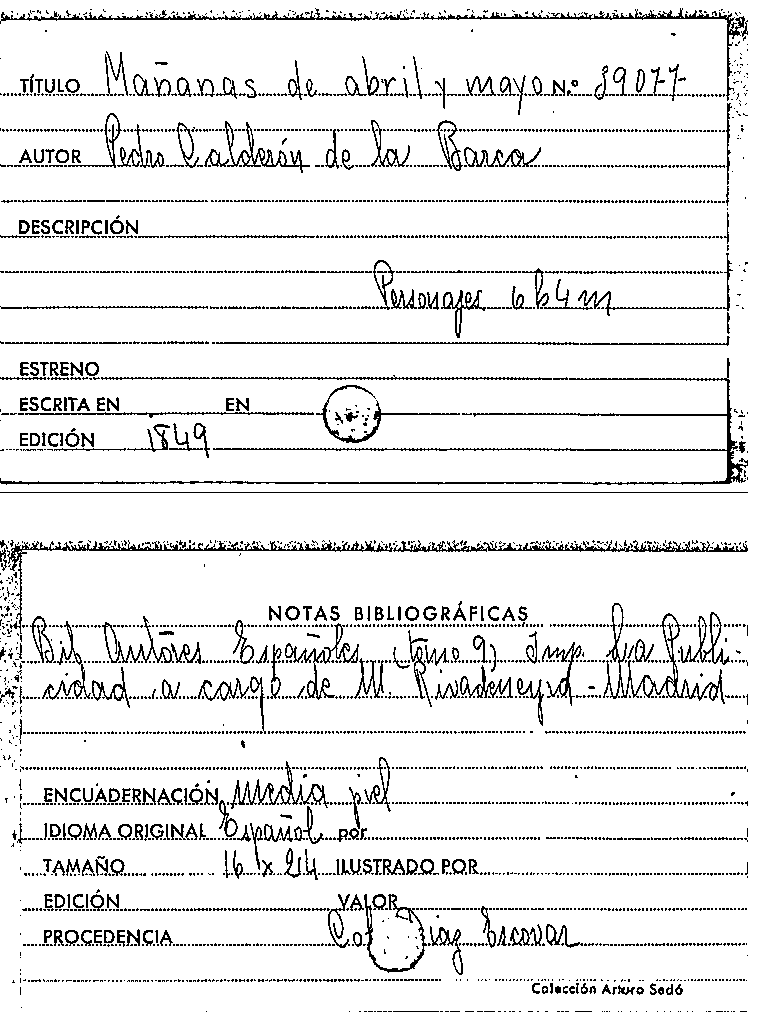 TÍTULO Mañanas de abril y mayo N.° 39077
AUTOR Pedro Calderón de la Barca
DESCRIPCIÓN
Personajes 6 h 4 m
ESTRENO
ESCRITA EN EN
EDICIÓN 1849
NOTAS BIBLIOGRÁFICAS
Bib Autores Españoles (tomo 9) Imp. La Publi-
cidad a cargo de M. Rivadeneyra - Madrid
ENCUADERNACIÓN media piel
IDIOMA ORIGINAL Español por
TAMAÑO 16 x 24 ILUSTRADO POR
EDICIÓN VALOR
PROCEDENCIA Díaz Escovar
Colección Arturo Sedó